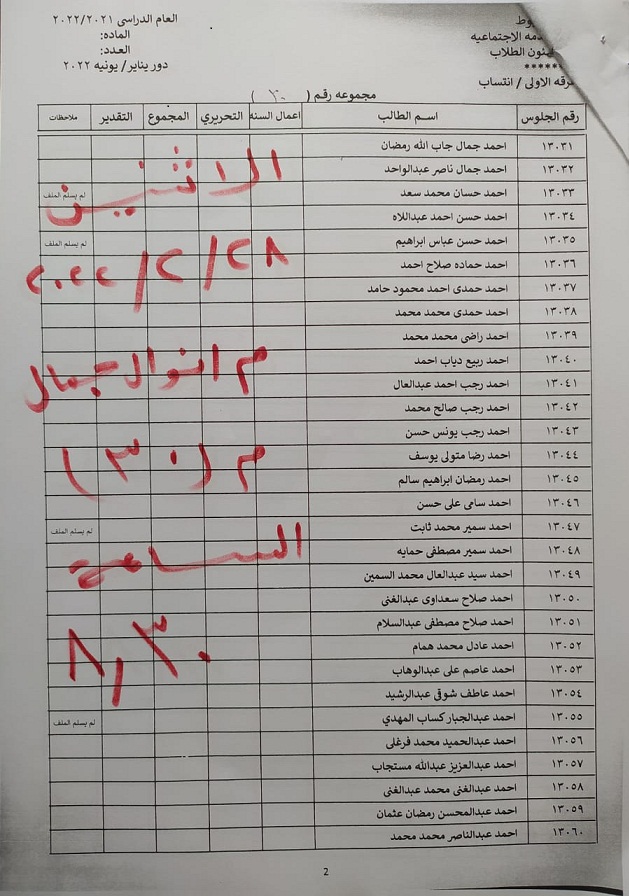 العام الدراسى ٢٠٢٢/٢٠٢١
المادة:
العدد:
دور يناير/ يونيه ٢٠٢٢
الاجتماعيه
الطلاب
*****
الاولى / انتساب
مجموعه رقم ( )
رقم الجلوس اسم الطالب اعمال السنه التحريري المجموع التقدير ملاحظات
١٣٠٣١ احمد جمال جاب الله رمضان
١٣٠٣٢ احمد جمال ناصر عبدالواحد
١٣٠٣٣ احمد حسان محمد سعد لم يسلم الملف
١٣٠٣٤ احمد حسن احمد عبداللاه
١٣٠٣٥ احمد حسن عباس ابراهيم لم يسلم الملف
١٣٠٣٦ احمد حماده صلاح احمد
١٣٠٣٧ احمد حمدى احمد محمود حامد
١٣٠٣٨ احمد حمدى محمد محمد
١٣٠٣٩ احمد راضى محمد محمد
١٣٠٤٠ احمد ربيع دياب احمد
١٣٠٤١ احمد رجب احمد عبدالعال
١٣٠٤٢ احمد رجب صالح محمد
١٣٠٤٣ احمد رجب يونس حسن
١٣٠٤٤ احمد رضا متولى يوسف
١٣٠٤٥ احمد رمضان ابراهيم سالم
١٣٠٤٦ احمد سامى على حسن
١٣٠٤٧ احمد سمير محمد ثابت لم يسلم الملف
١٣٠٤٨ احمد سمير مصطفى حمايه
١٣٠٤٩ احمد سيد عبدالعال محمد السمين
١٣٠٥٠ احمد صلاح سعداوى عبدالغنى
١٣٠٥١ احمد صلاح مصطفى عبدالسلام
١٣٠٥٢ احمد عادل محمد همام
١٣٠٥٣ احمد عاصم على عبدالوهاب
١٣٠٥٤ احمد عاطف شوقى عبدالرشيد
١٣٠٥٥ احمد عبدالجبار كساب المهدي لم يسلم الملف
١٣٠٥٦ احمد عبدالحميد محمد فرغلى
١٣٠٥٧ احمد عبدالعزيز عبدالله مستجاب
١٣٠٥٨ احمد عبدالغنى محمد عبدالغنى
١٣٠٥٩ احمد عبدالمحسن رمضان عثمان
١٣٠٦٠ احمد عبدالناصر محمد محمد
الاثنين
٢٠٢٢/٢/٢٨
م انوال جمال
م (٣٠)
الساعة
٨,٣٠
2